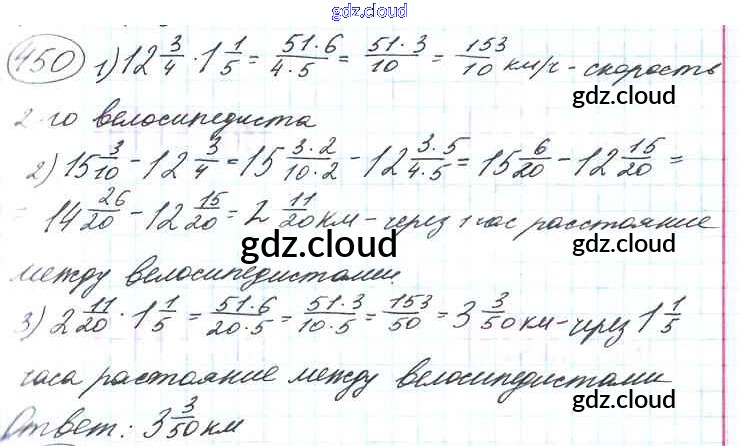 gdz.cloud
450 1) 12 3/4 · 1 1/5 = 51·6/4·5 = 51·3/10 = 153/10 км/ч - скорость
gdz.cloud
2-го велосипедиста
2) 15 3/10 - 12 3/4 = 15 3·2/10·2 - 12 3·5/4·5 = 15 6/20 - 12 15/20 =
= 14 26/20 - 12 15/20 = 2 11/20 км - через 1 час расстояние
gdz.cloud gdz.cloud
между велосипедистами.
3) 2 11/20 · 1 1/5 = 51·6/20·5 = 51·3/10·5 = 153/50 = 3 3/50 км - через 1 1/5
часа растояние между велосипедистами
gdz.cloud
Ответ: 3 3/50 км